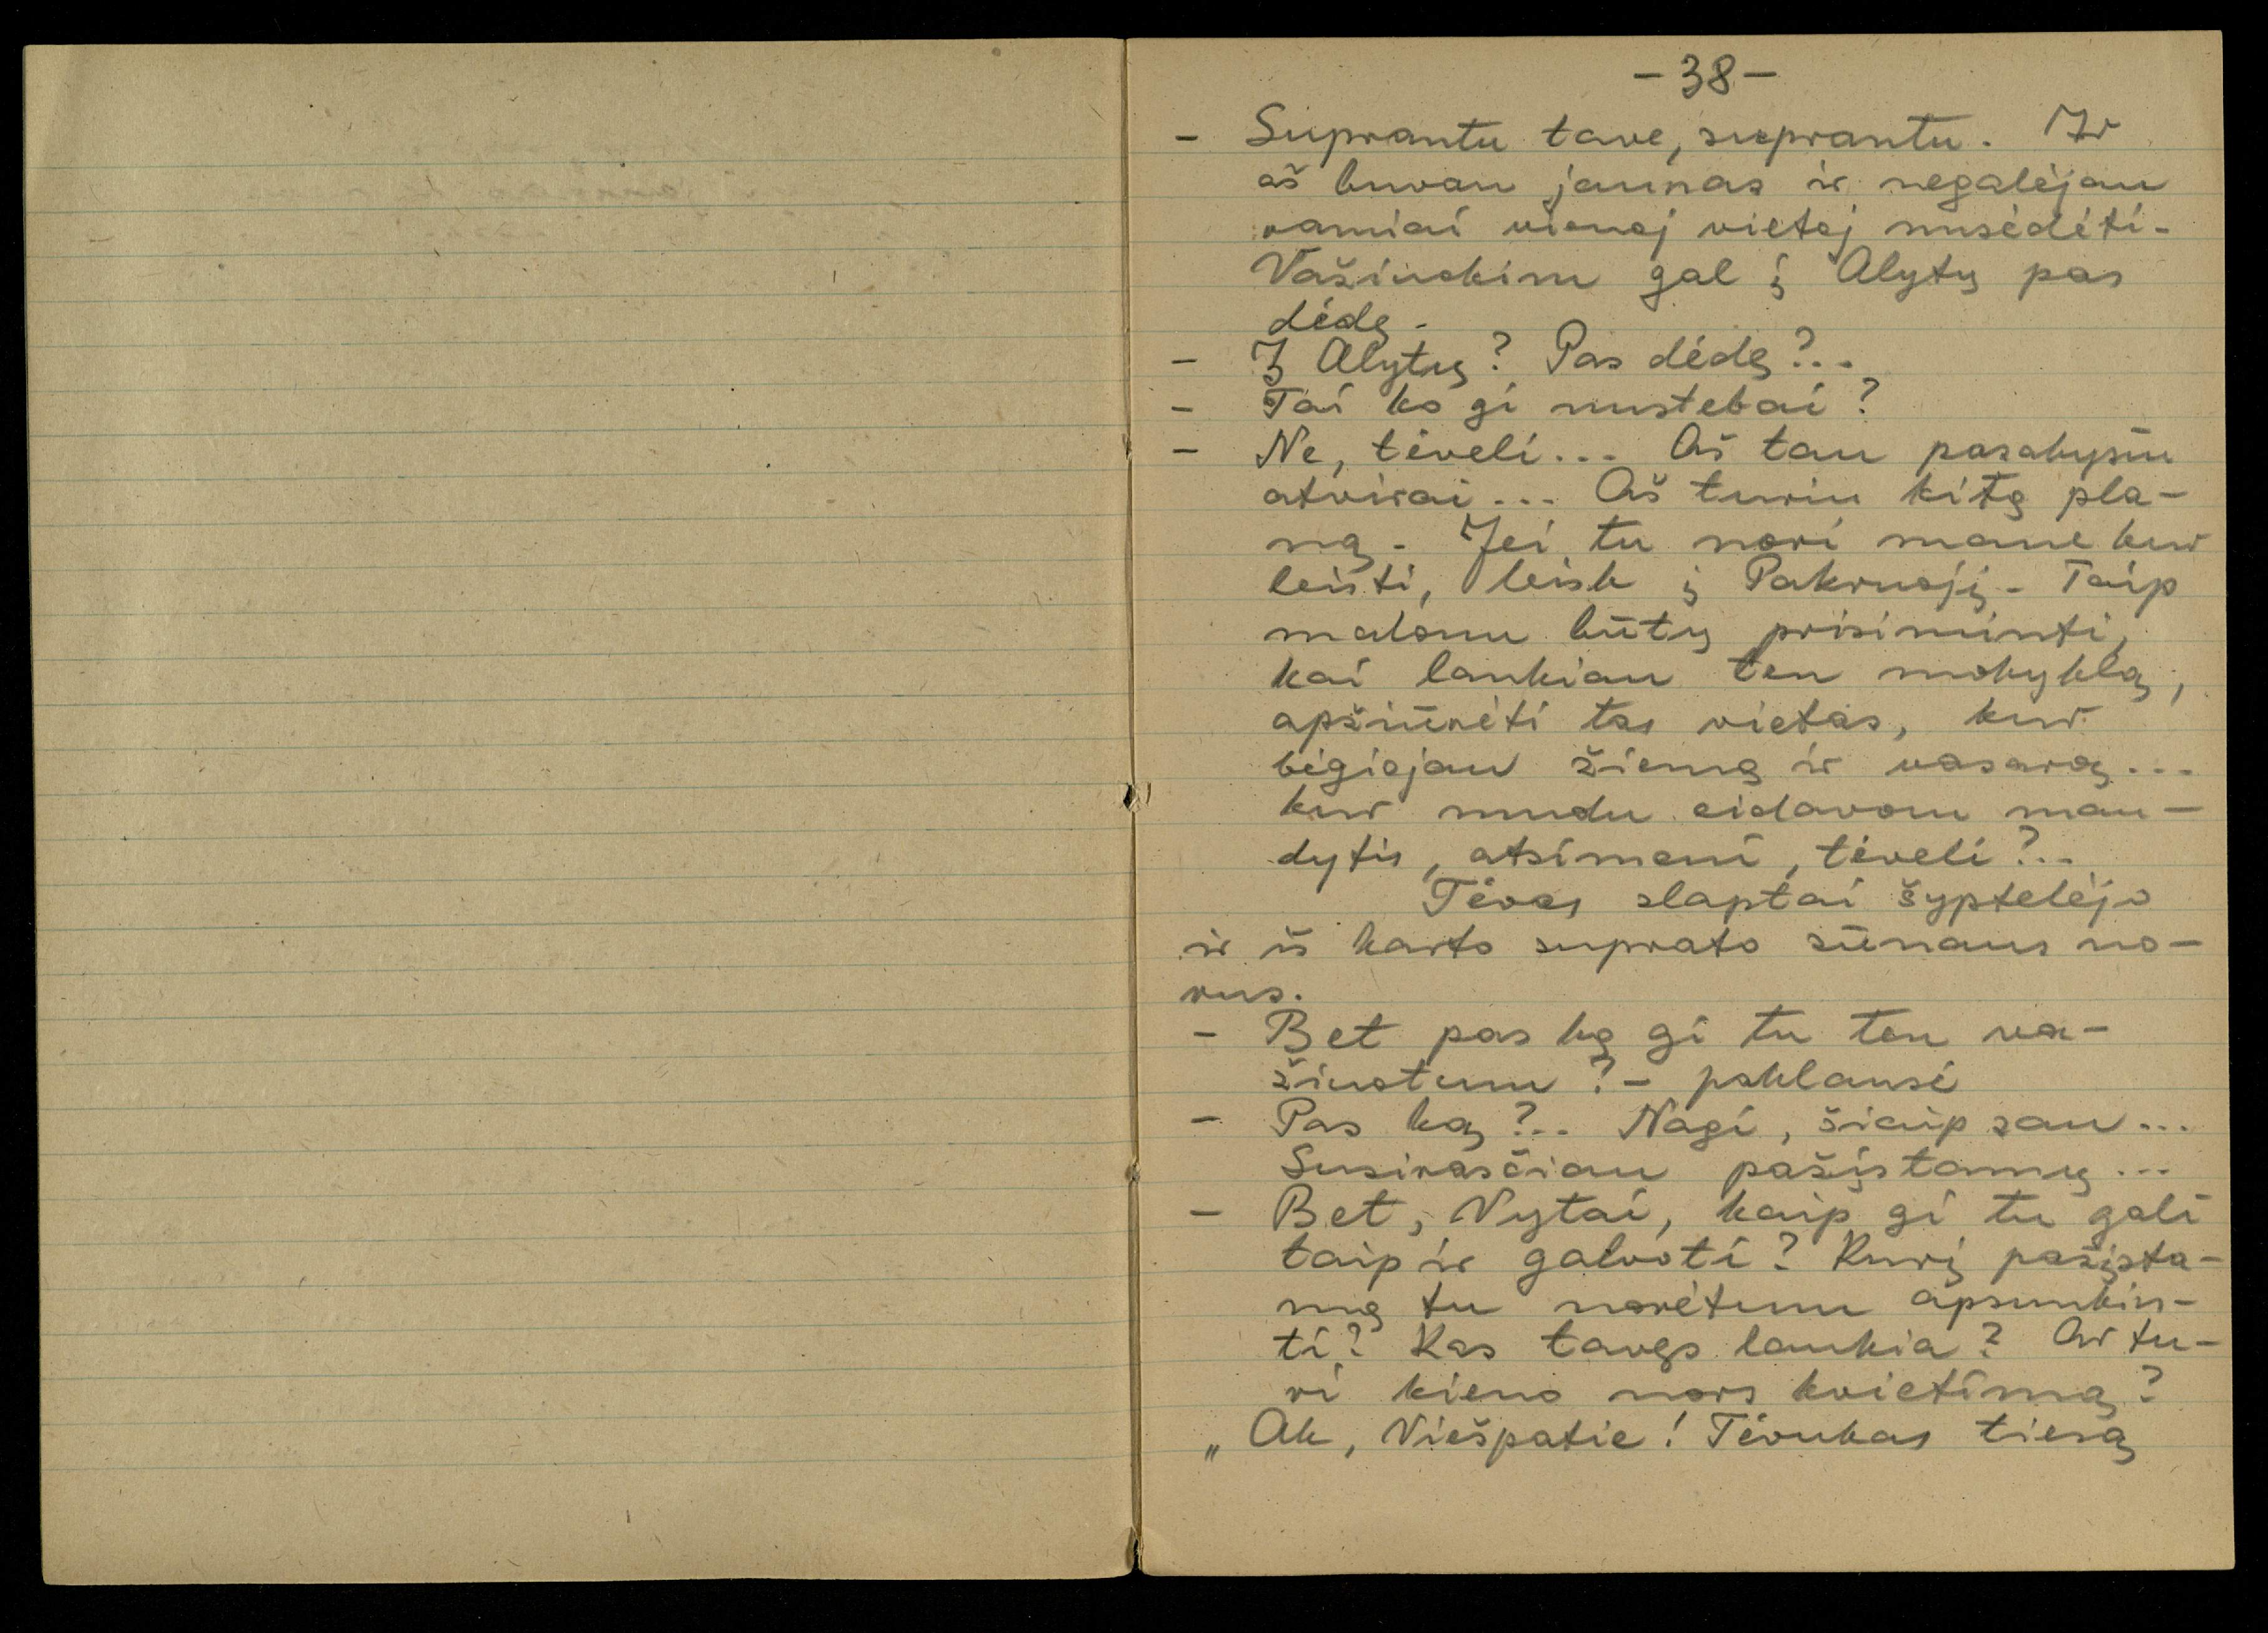 - 38 -
- Suprantu tave, suprantu. Ir
aš buvau jaunas ir negalėjau
ramiai vienoj vietoj nusėdėti.
Važiuokim gal į Alytų pas
dėdę.
- Į Alytų? Pas dėdę?..
- Tai ko gi nustebai?
- Ne, tėveli... Aš tau pasakysiu
atvirai... Aš turiu kitą pla-
ną. Jei tu nori mane kur
leisti, leisk į Pakruojį. Taip
malonu būtų prisiminti,
kai lankiau ten mokyklą,
apžiūrėti tas vietas, kur
bėgiojau žiemą ir vasarą...
kur mudu eidavom mau-
dytis, atsimeni, tėveli?..
Tėvas slaptai šyptelėjo
ir iš karto suprato sūnaus no-
rus.
- Bet pas ką gi tu ten va-
žiuotum? - paklausė
- Pas ką?.. Nagi, šiaip sau...
Susirasčiau pažįstamų...
- Bet, Vytai, kaip gi tu gali
taip ir galvoti? Kurį pažįsta-
mą tu norėtum apsunkin-
ti? Kas tavęs laukia? Ar tu-
ri kieno nors kvietimą?
„Ak, Viešpatie! Tėvukas tiesą